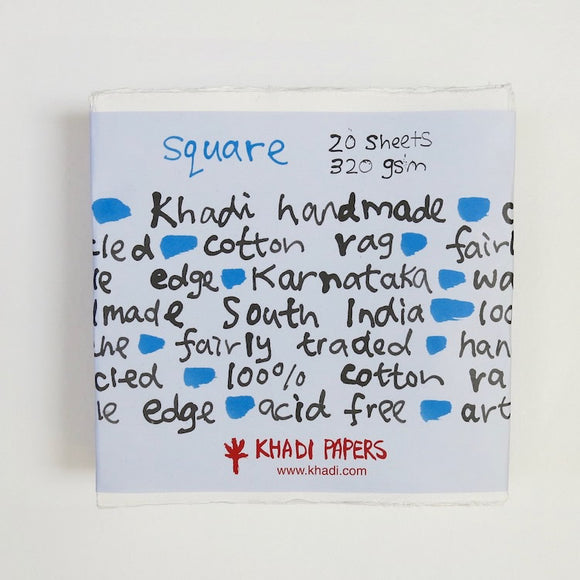 square 20 sheets
320 gsm
Khadi handmade c
cled cotton rag fairl
e edge Karnataka wa
made South India 100
he fairly traded han
cled 100% cotton ra
e edge acid free art
KHADI PAPERS
www.khadi.com